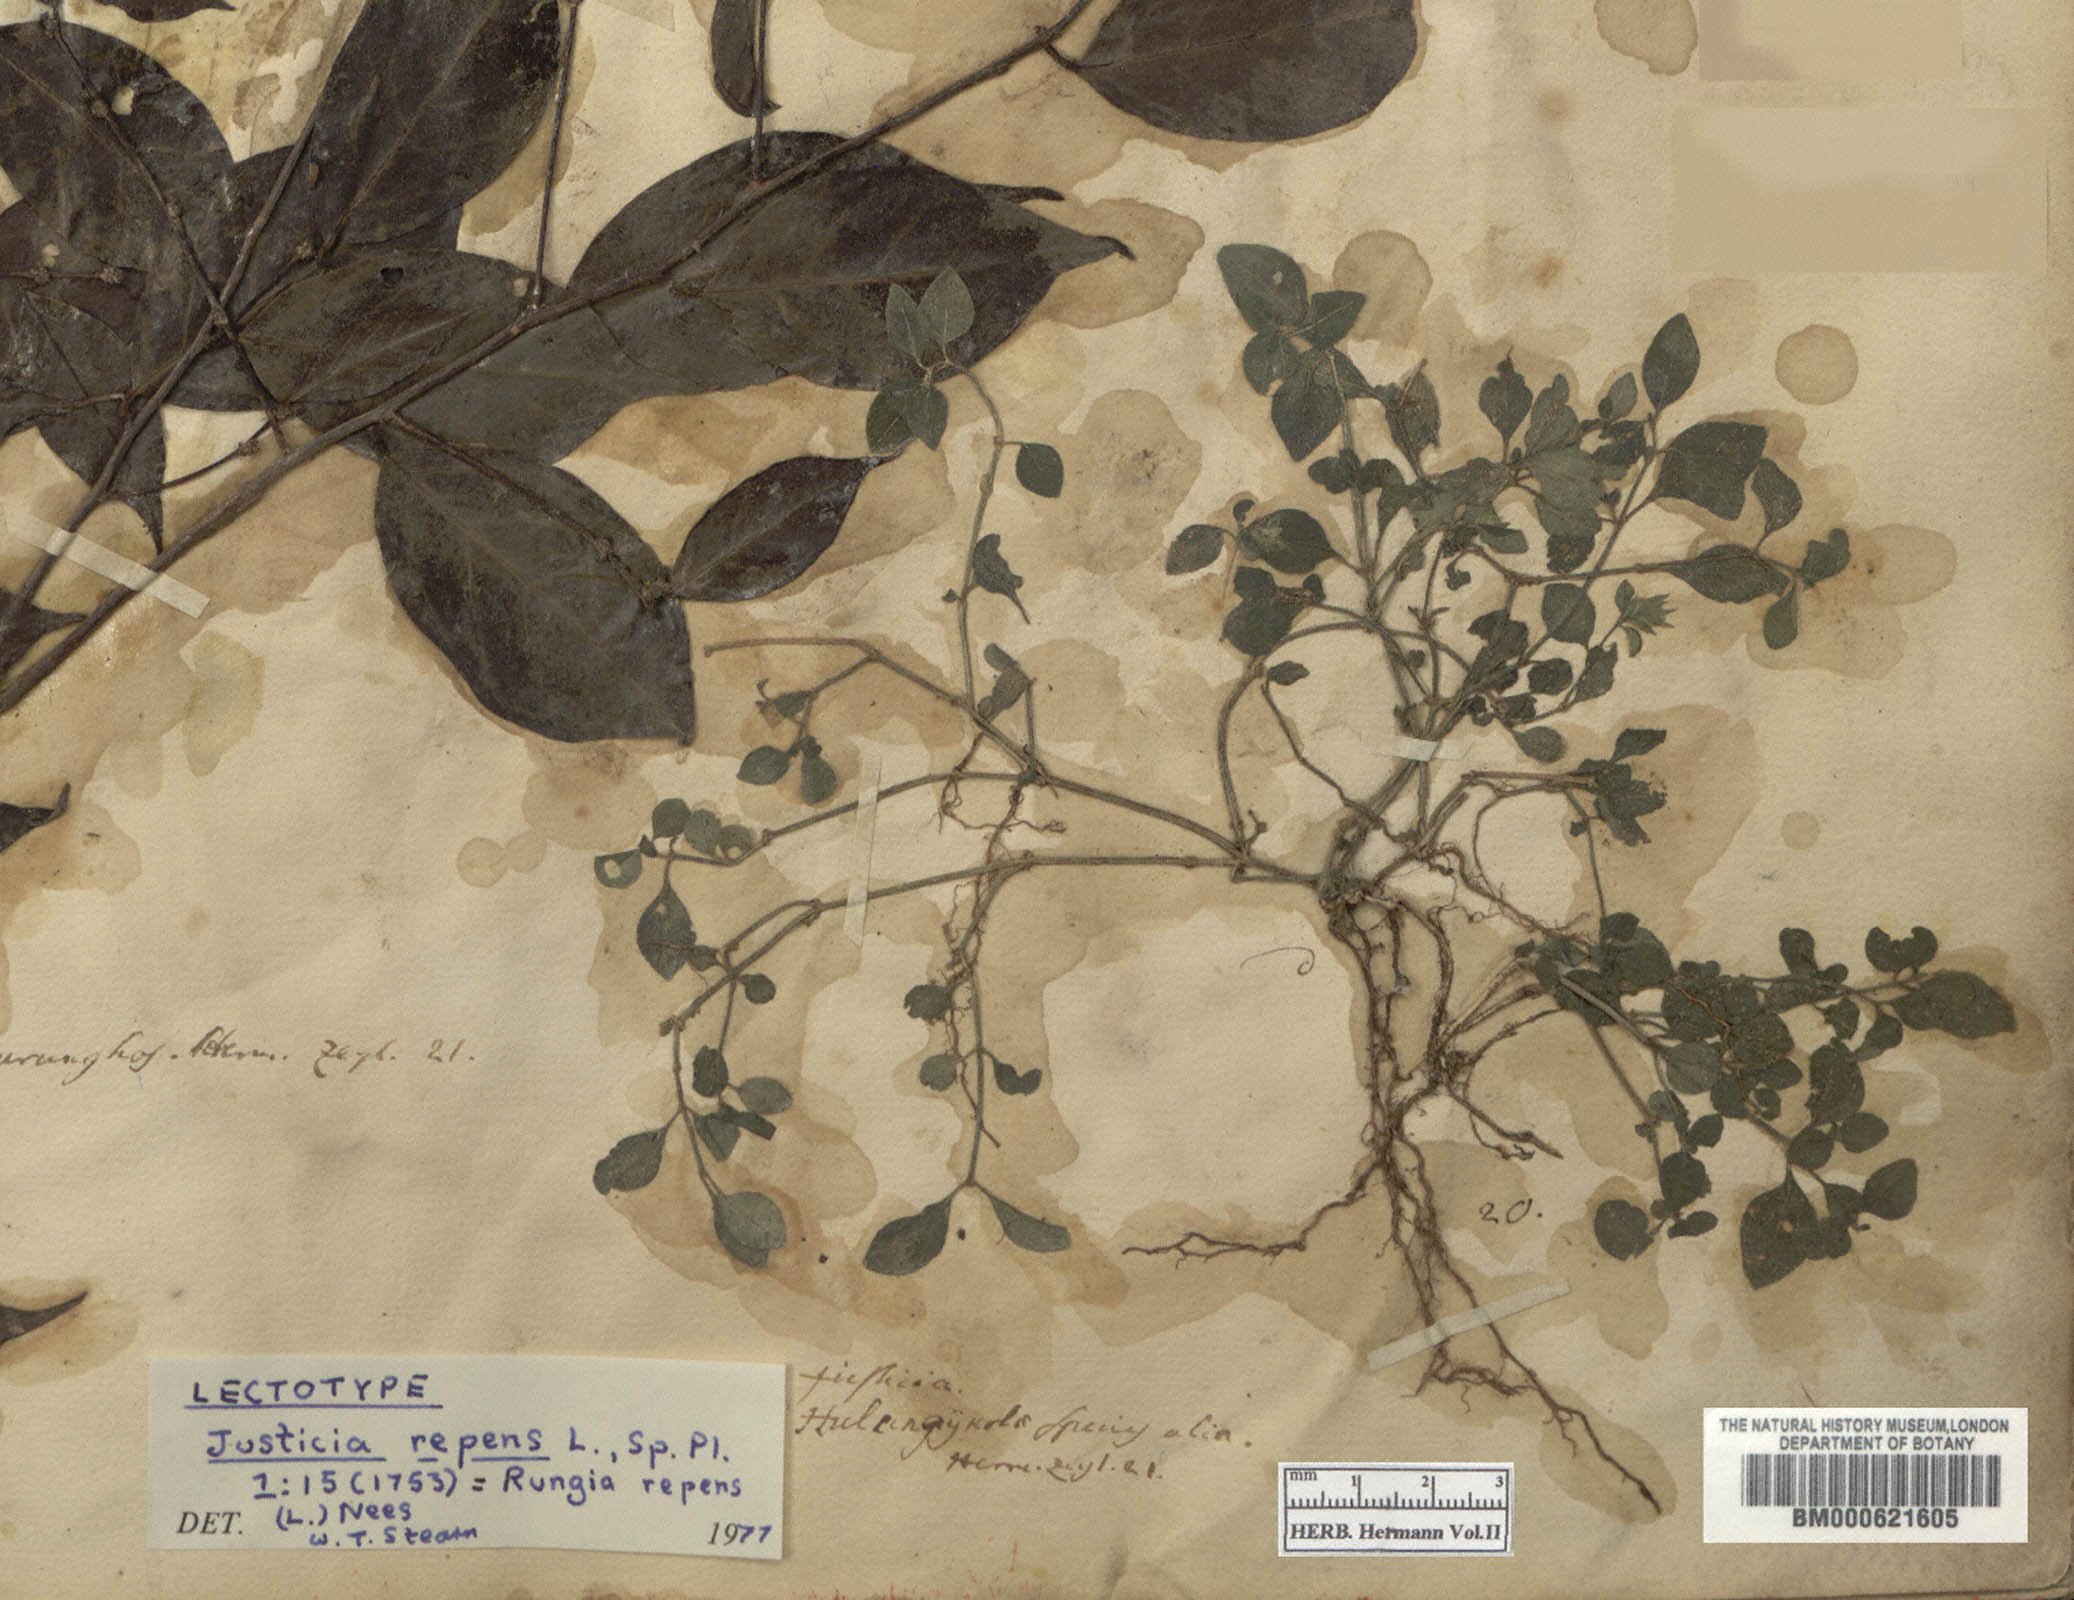 Herm. Zeyl. 21.
20.
LECTOTYPE
Justicia repens L., Sp. Pl.
1:15 (1753) = Rungia repens
(L.) Nees
DET. W. T. Stearn 1977
Justicia.
species alia.
Herm. zeyl. 21.
mm 1 2 3
HERB. Hermann Vol.II
THE NATURAL HISTORY MUSEUM,LONDON
DEPARTMENT OF BOTANY
BM000621605